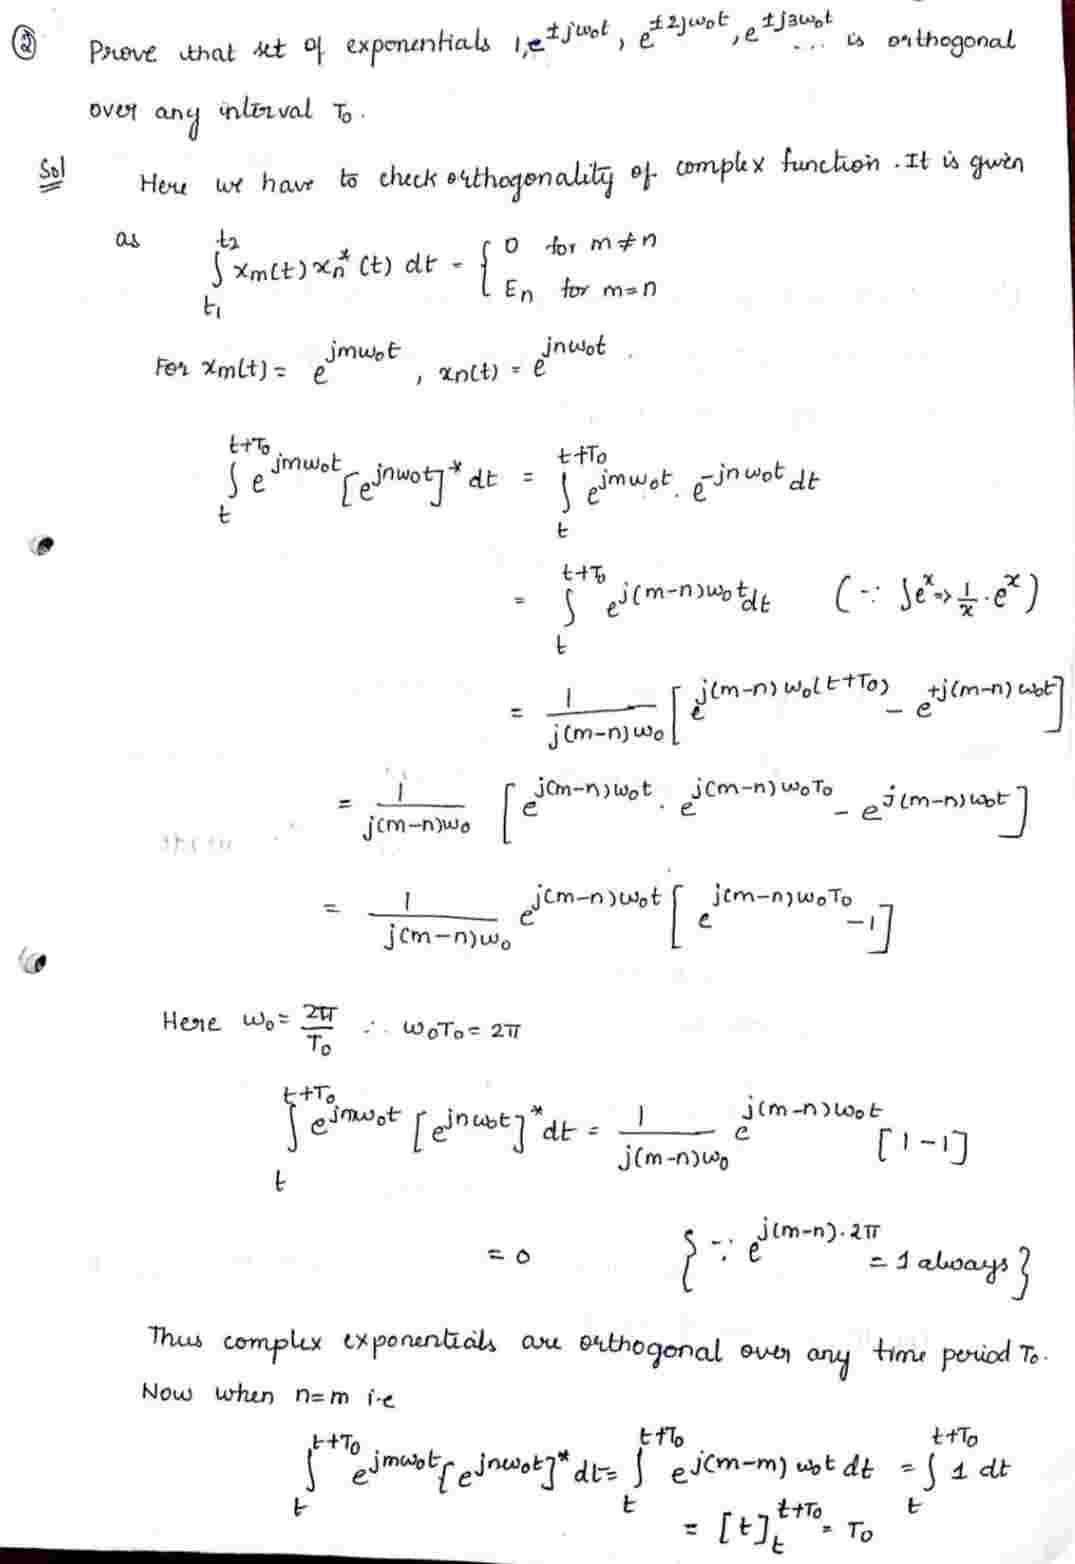 ② Prove that set of exponentials 1, e^{±jω₀t}, e^{±2jω₀t}, e^{±j3ω₀t} ... is orthogonal
over any interval T₀.
Sol Here we have to check orthogonality of complex function. It is given
as ∫_{t₁}^{t₂} xm(t) xn*(t) dt = { 0 for m≠n
En for m=n
For xm(t) = e^{jmω₀t}, xn(t) = e^{jnω₀t}.
∫_{t}^{t+T₀} e^{jmω₀t} [e^{jnω₀t}]* dt = ∫_{t}^{t+T₀} e^{jmω₀t} . e^{-jnω₀t} dt
= ∫_{t}^{t+T₀} e^{j(m-n)ω₀t} dt (∵ ∫e^x ⇒ 1/x . e^x)
= 1/(j(m-n)ω₀) [e^{j(m-n)ω₀(t+T₀)} - e^{+j(m-n)ω₀t}]
= 1/(j(m-n)ω₀) [e^{j(m-n)ω₀t} . e^{j(m-n)ω₀T₀} - e^{j(m-n)ω₀t}]
= 1/(j(m-n)ω₀) e^{j(m-n)ω₀t} [e^{j(m-n)ω₀T₀} - 1]
Here ω₀ = 2π/T₀ ∴ ω₀T₀ = 2π
∫_{t}^{t+T₀} e^{jmω₀t} [e^{jnω₀t}]* dt = 1/(j(m-n)ω₀) e^{j(m-n)ω₀t} [1-1]
= 0 {∵ e^{j(m-n).2π} = 1 always}
Thus complex exponentials are orthogonal over any time period T₀.
Now when n=m i.e
∫_{t}^{t+T₀} e^{jmω₀t} [e^{jnω₀t}]* dt = ∫_{t}^{t+T₀} e^{j(m-m)ω₀t} dt = ∫_{t}^{t+T₀} 1 dt
= [t]_{t}^{t+T₀} = T₀